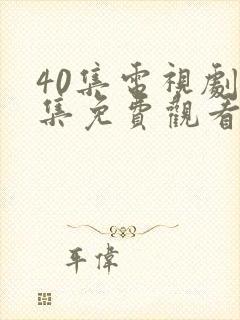 40集電視劇
集免費觀看
平偉